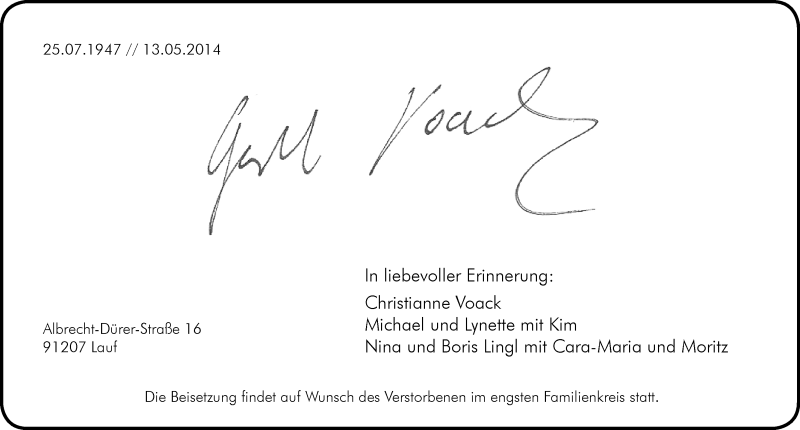 25.07.1947 // 13.05.2014
Voack
In liebevoller Erinnerung:
Christianne Voack
Michael und Lynette mit Kim
Nina und Boris Lingl mit Cara-Maria und Moritz
Albrecht-Dürer-Straße 16
91207 Lauf
Die Beisetzung findet auf Wunsch des Verstorbenen im engsten Familienkreis statt.